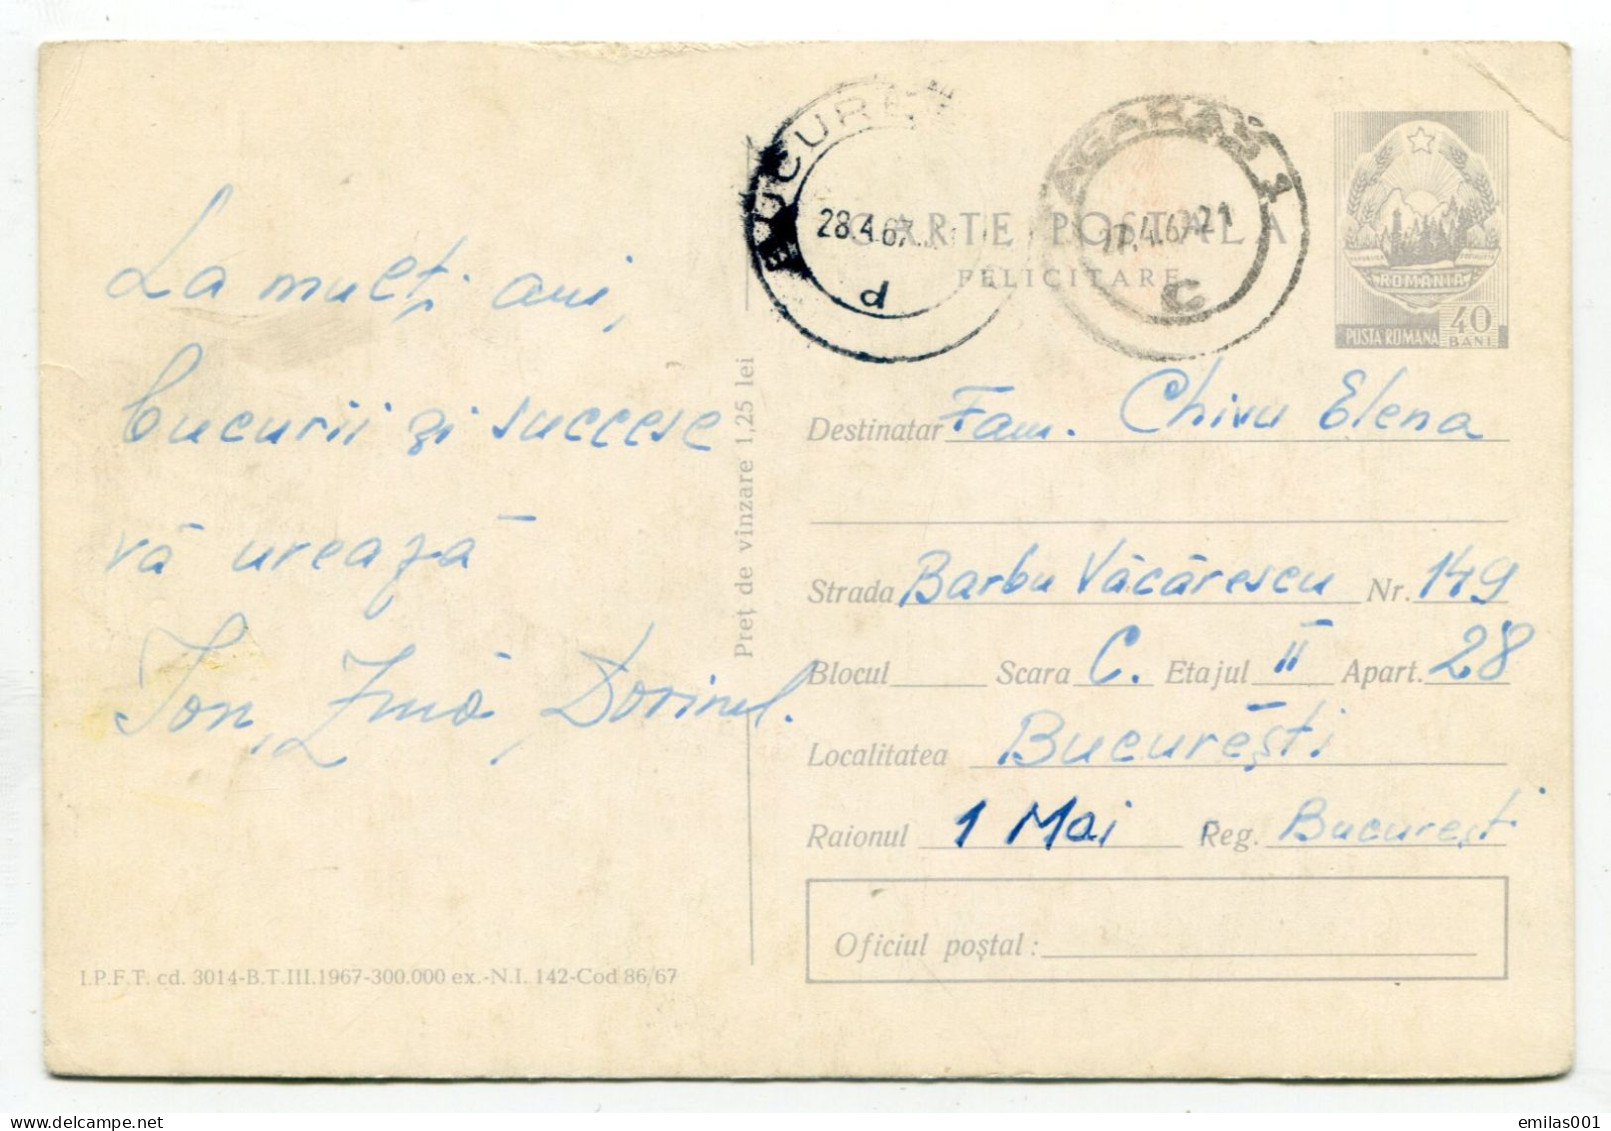 La mulți ani,
bucurii și succese
vă urează
Ion, Zină, Dorinel.
I.P.F.T. cd. 3014-B.T.III.1967-300.000 ex.-N.I. 142-Cod 86/67
Preț de vînzare 1,25 lei
28.4.67
d
AGARAS 1
C
CARTE POSTALA
FELICITARE
ROMANIA
POSTA ROMANA 40 BANI
Destinatar Fam. Chivu Elena
Strada Barbu Văcărescu Nr. 149
Blocul Scara C. Etajul II Apart. 28
Localitatea București
Raionul 1 Mai Reg. București
Oficiul poștal :
emilas001